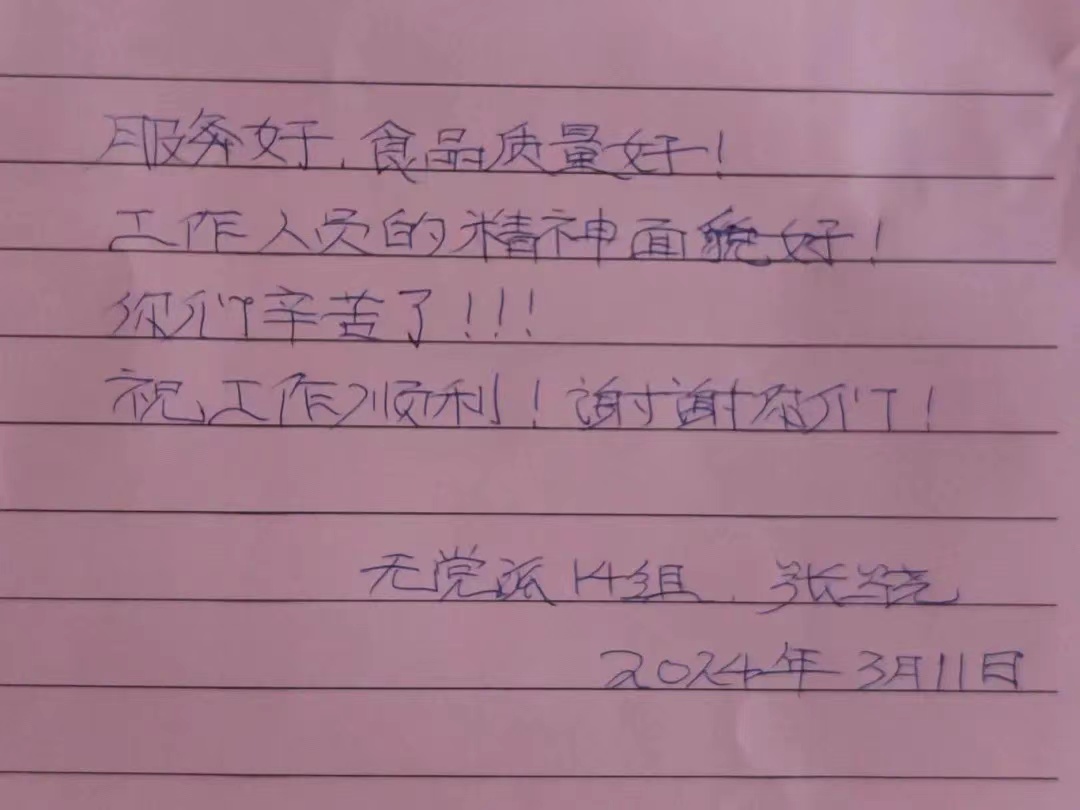 服务好、食品质量好！
工作人员的精神面貌好！
你们辛苦了！！！
祝工作顺利！谢谢你们！
无党派14组 张晓
2024年3月11日